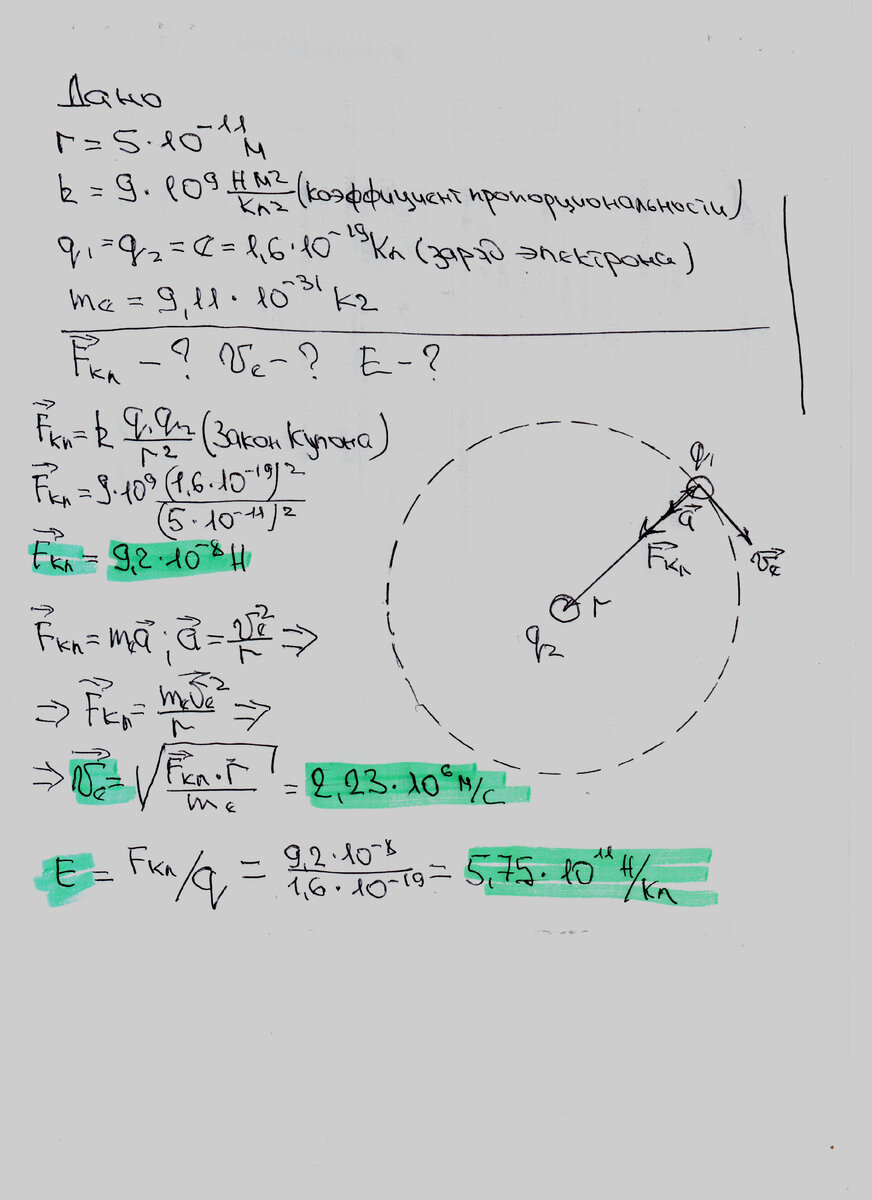 Дано
r = 5·10⁻¹¹ м
k = 9·10⁹ Нм²/Кл² (коэффициент пропорциональности)
q₁ = q₂ = e = 1,6·10⁻¹⁹ Кл (заряд электрона)
mₑ = 9,11·10⁻³¹ кг
F⃗кл - ? vₑ - ? E - ?
F⃗кл = k q₁q₂/r² (Закон Кулона)
F⃗кл = 9·10⁹ (1,6·10⁻¹⁹)²/(5·10⁻¹¹)²
F⃗кл = 9,2·10⁻⁸ Н
F⃗кл = mₑa⃗; a⃗ = v⃗ₑ²/r ⇒
⇒ F⃗кл = mₑv⃗ₑ²/r ⇒
⇒ v⃗ₑ = √(F⃗кл·r⃗/mₑ) = 2,23·10⁶ м/с
E = Fкл/q = 9,2·10⁻⁸/1,6·10⁻¹⁹ = 5,75·10¹¹ Н/Кл
q₁
a⃗
F⃗кл
v⃗ₑ
r
q₂